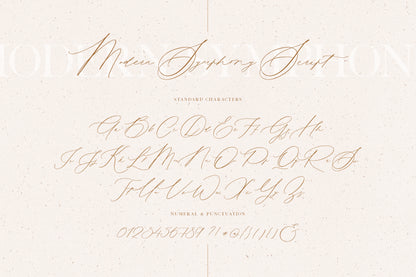 MODERN SYMPHON
Modern Symphony Script
STANDARD CHARACTERS
Aa Bb Cc Dd Ee Ff Gg Hh
Ii Jj Kk Ll Mm Nn Oo Pp Qq Rr Ss
Tt Uu Vv Ww Xx Yy Zz
NUMERAL & PUNCTUATION
0123456789 ?! *@(/)[/]{/}&